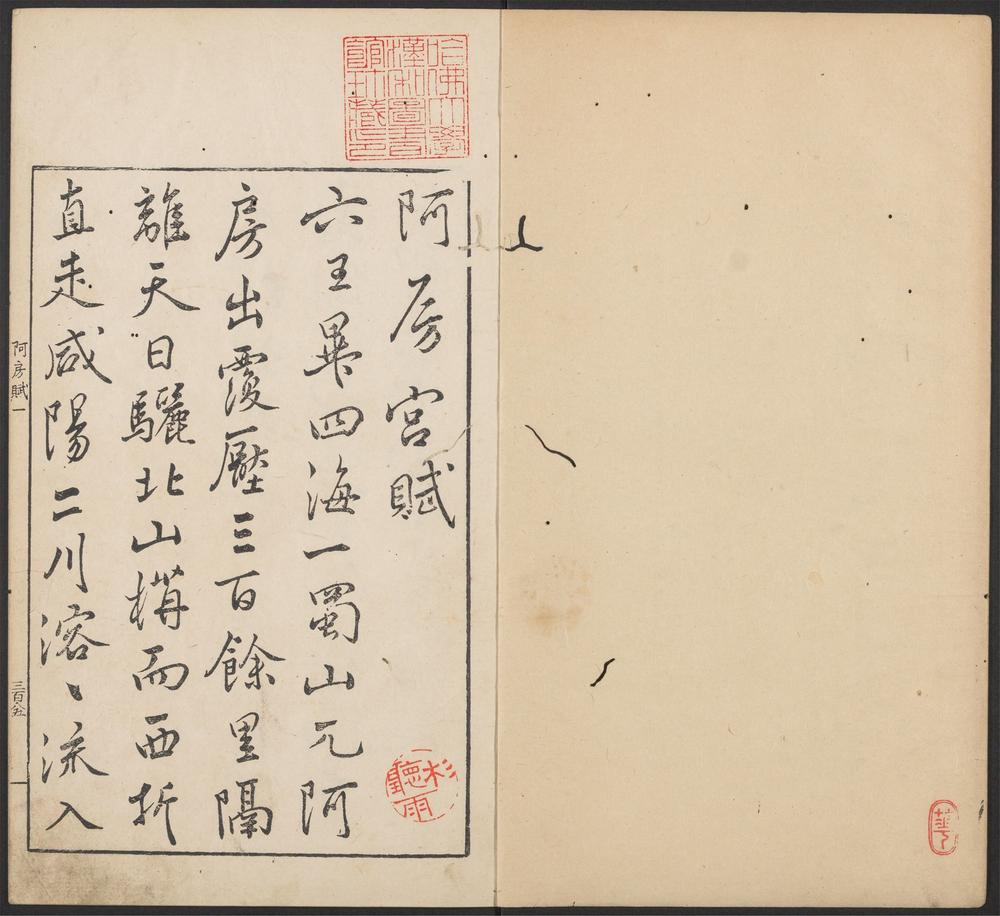 哈佛大學
漢和圖書
館珍藏印
阿房宮賦
六王畢四海一蜀山兀阿
房出覆壓三百餘里隔
離天日驪北山構而西折
直走咸陽二川溶〻流入
阿房賦一
三百五
聽雨